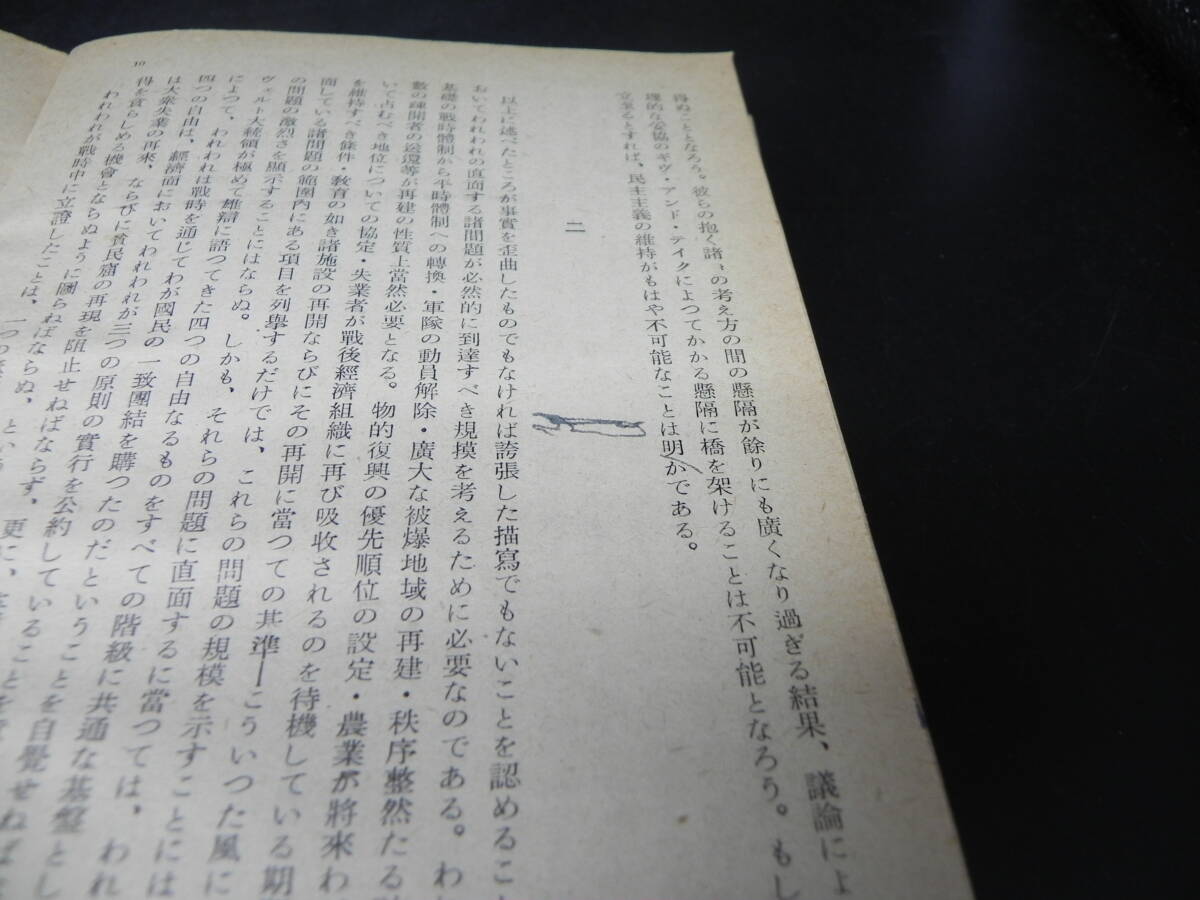 10
得ぬこととなろう。彼らの抱く諸々の考え方の間の懸隔が餘りにも廣くなり過ぎる結果、議論によ
理的な妥協のギヴ・アンド・テイクによつてかかる懸隔に橋を架けることは不可能となろう。もし
立至るとすれば、民主主義の維持がもはや不可能なことは明かである。
二
以上に述べたところが事實を歪曲したものでもなければ誇張した描寫でもないことを認めるこ
おいてわれわれの直面する諸問題が必然的に到達すべき規模を考えるために必要なのである。わ
基礎の戰時體制から平時體制への轉換・軍隊の動員解除・廣大な被爆地域の再建・秩序整然たる
數の疎開者の送還等が再建の性質上當然必要となる。物的復興の優先順位の設定・農業が將來わ
いて占むべき地位についての協定・失業者が戰後經濟組織に再び吸收されるのを待機している期
を維持すべき條件・教育の如き諸施設の再開ならびにその再開に當つての基準――こういつた風に
面している諸問題の範圍内にある項目を列擧するだけでは、これらの問題の規模を示すことには
の問題の激烈さを顯示することにはならぬ。しかも、それらの問題に直面するに當つては、われ
ヴェルト大統領が極めて雄辯に語つてきた四つの自由なるものをすべての階級に共通な基盤とし
によつて、われわれは戰時を通じてわが國民の一致團結を購つたのだということを自覺せねば
四つの自由は、經濟面においてわれわれが三つの原則の實行を公約していることを
は大衆失業の再來、ならびに貧民窟の再現を阻止せねばならず、更に、
得を貪らしめる機會とならぬように圖らねばならぬ、という
われわれが戰時中に立證したことは、一つの